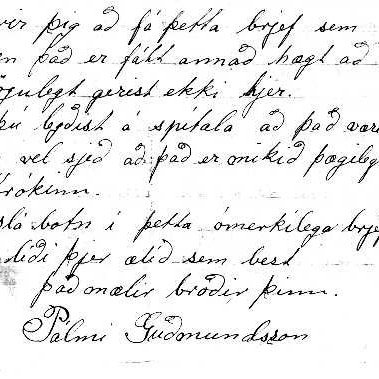 rir þig að fá þetta brjef sem
en það er fátt annað hægt að
gjulegt gerist ekki hjer.
þú leðist á spítala að það vær
vel sjeð að það er mikið þægileg
krókinn.
slá botn í þetta ómerkilega brje
líði þjer ætíð sem best
það mælir bróðir þinn.
Pálmi Guðmundsson